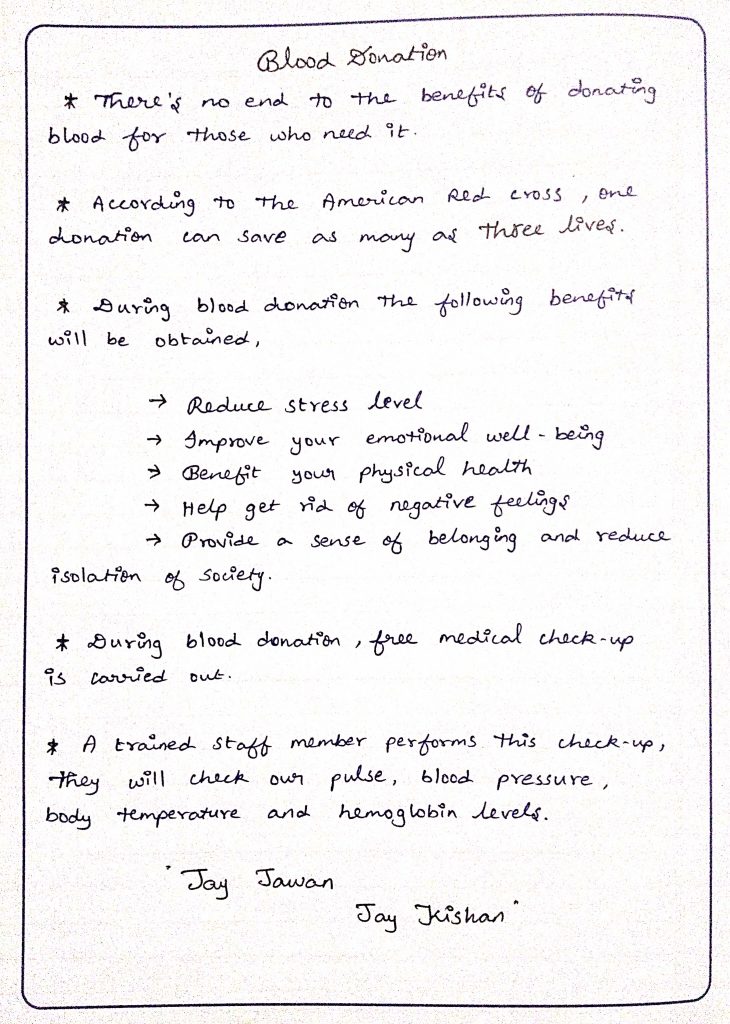 Blood Donation
* There's no end to the benefits of donating
blood for those who need it.
* According to the American Red cross, one
donation can save as many as three lives.
* During blood donation the following benefits
will be obtained,
→ Reduce stress level
→ Improve your emotional well-being
→ Benefit your physical health
→ Help get rid of negative feelings
→ Provide a sense of belonging and reduce
isolation of society.
* During blood donation, free medical check-up
is carried out.
* A trained staff member performs this check-up,
they will check our pulse, blood pressure,
body temperature and hemoglobin levels.
"Jay Jawan
Jay Kishan"